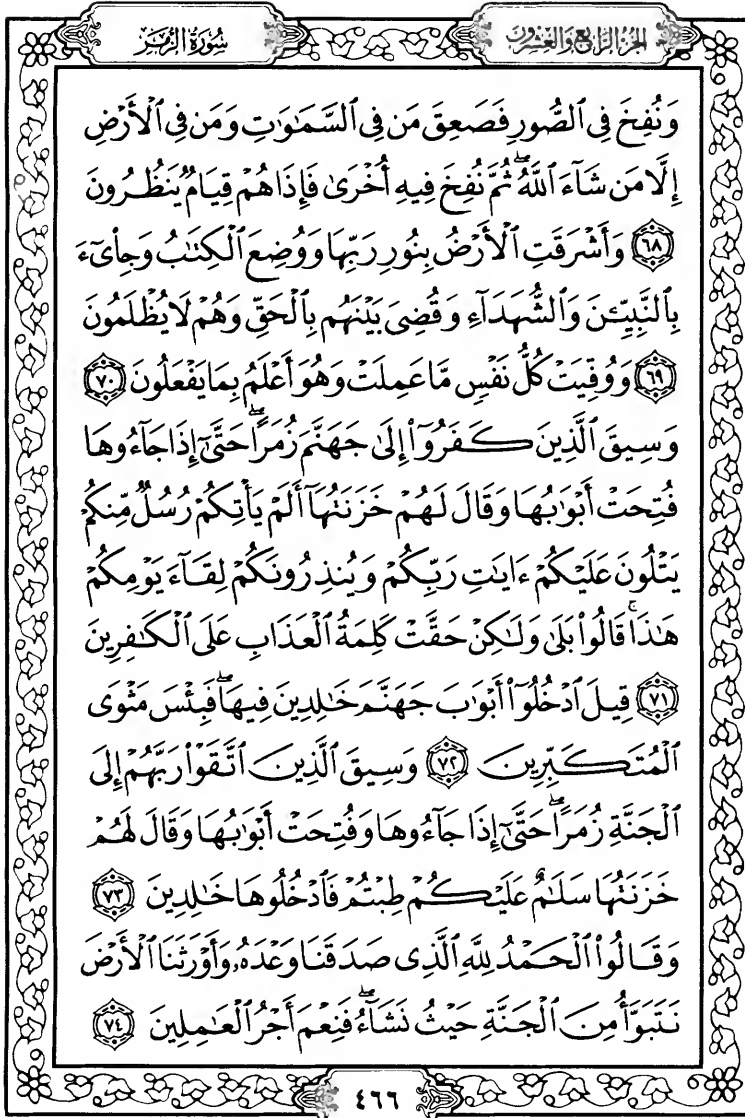 الجزء الرابع والعشرون
سورة الزمر
وَنُفِخَ فِي ٱلصُّورِ فَصَعِقَ مَن فِي ٱلسَّمَـٰوَٰتِ وَمَن فِي ٱلْأَرْضِ
إِلَّا مَن شَآءَ ٱللَّهُ ۖ ثُمَّ نُفِخَ فِيهِ أُخْرَىٰ فَإِذَا هُمْ قِيَامٌ يَنظُرُونَ
٦٨ وَأَشْرَقَتِ ٱلْأَرْضُ بِنُورِ رَبِّهَا وَوُضِعَ ٱلْكِتَـٰبُ وَجِا۟ىٓءَ
بِٱلنَّبِيِّـۧنَ وَٱلشُّهَدَآءِ وَقُضِيَ بَيْنَهُم بِٱلْحَقِّ وَهُمْ لَا يُظْلَمُونَ
٦٩ وَوُفِّيَتْ كُلُّ نَفْسٍ مَّا عَمِلَتْ وَهُوَ أَعْلَمُ بِمَا يَفْعَلُونَ ٧٠
وَسِيقَ ٱلَّذِينَ كَفَرُوٓا۟ إِلَىٰ جَهَنَّمَ زُمَرًا ۖ حَتَّىٰٓ إِذَا جَآءُوهَا
فُتِحَتْ أَبْوَٰبُهَا وَقَالَ لَهُمْ خَزَنَتُهَآ أَلَمْ يَأْتِكُمْ رُسُلٌ مِّنكُمْ
يَتْلُونَ عَلَيْكُمْ ءَايَـٰتِ رَبِّكُمْ وَيُنذِرُونَكُمْ لِقَآءَ يَوْمِكُمْ
هَـٰذَا ۚ قَالُوا۟ بَلَىٰ وَلَـٰكِنْ حَقَّتْ كَلِمَةُ ٱلْعَذَابِ عَلَى ٱلْكَـٰفِرِينَ
٧١ قِيلَ ٱدْخُلُوٓا۟ أَبْوَٰبَ جَهَنَّمَ خَـٰلِدِينَ فِيهَا ۖ فَبِئْسَ مَثْوَى
ٱلْمُتَكَبِّرِينَ ٧٢ وَسِيقَ ٱلَّذِينَ ٱتَّقَوْا۟ رَبَّهُمْ إِلَى
ٱلْجَنَّةِ زُمَرًا ۖ حَتَّىٰٓ إِذَا جَآءُوهَا وَفُتِحَتْ أَبْوَٰبُهَا وَقَالَ لَهُمْ
خَزَنَتُهَا سَلَـٰمٌ عَلَيْكُمْ طِبْتُمْ فَٱدْخُلُوهَا خَـٰلِدِينَ ٧٣
وَقَالُوا۟ ٱلْحَمْدُ لِلَّهِ ٱلَّذِي صَدَقَنَا وَعْدَهُۥ وَأَوْرَثَنَا ٱلْأَرْضَ
نَتَبَوَّأُ مِنَ ٱلْجَنَّةِ حَيْثُ نَشَآءُ ۖ فَنِعْمَ أَجْرُ ٱلْعَـٰمِلِينَ ٧٤
٤٦٦